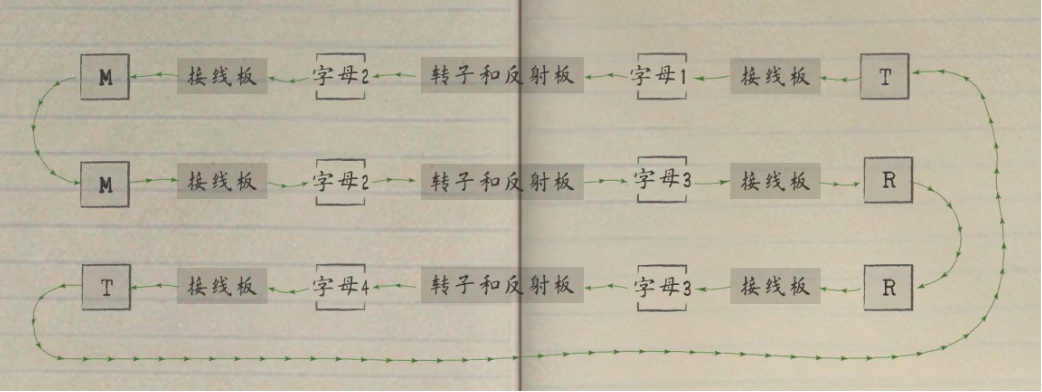 M 接线板 字母2 转子和反射板 字母1 接线板 T
M 接线板 字母2 转子和反射板 字母3 接线板 R
T 接线板 字母4 转子和反射板 字母3 接线板 R